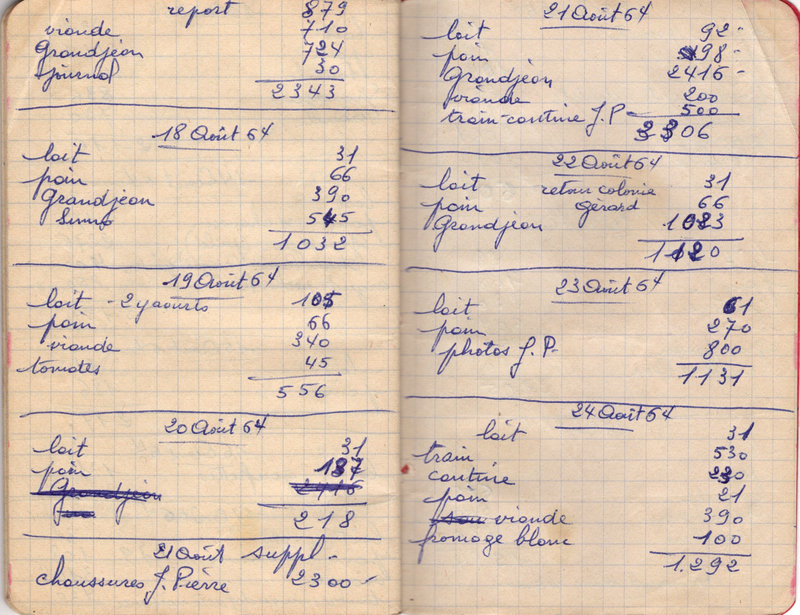 report 879
viande 710
Grandjean 724
journal 30
2343
18 Août 64
lait 31
pain 66
Grandjean 390
545
1032
19 Août 64
lait - 2 yaourts 105
pain 66
viande 340
tomates 45
556
20 Août 64
lait 31
pain 187
Grandjean 2416
218
21 Août suppl -
chaussures J. Pierre 2300 -
21 Août 64
lait 92 -
pain 98 -
Grandjean 2416 -
viande 200
train-cantine J.P. 500
3306
22 Août 64
lait retour colonie 31
pain gérard 66
Grandjean 1023
1120
23 Août 64
lait 61
pain 270
photos J. P. 800
1131
24 Août 64
lait 31
train 530
cantine 220
pain 21
viande 390
fromage blanc 100
1.292